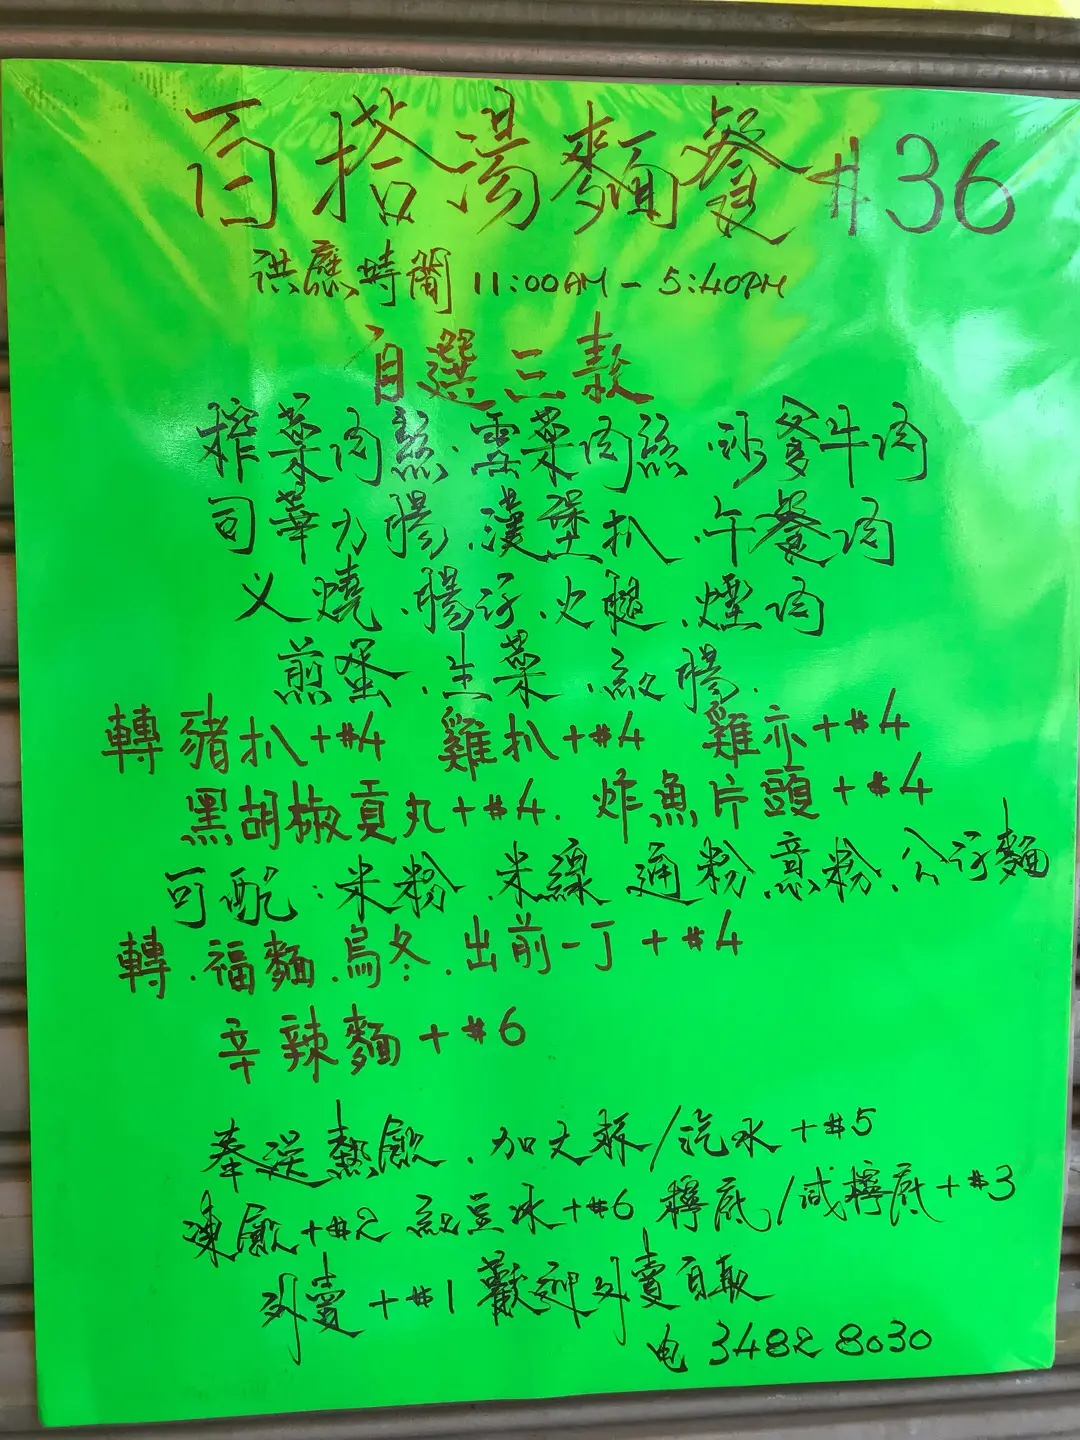 百搭湯麵餐 #36
供應時間 11:00AM - 5:40PM
自選三款
榨菜肉絲.雪菜肉絲.沙爹牛肉
司華力腸.漢堡扒.午餐肉
义燒.腸仔.火腿.煙肉
煎蛋.生菜.紅腸.
轉豬扒+#4 雞扒+#4 雞亦+#4
黑胡椒貢丸+#4. 炸魚片頭+#4
可配:米粉.米線 通粉.意粉.公仔麵
轉.福麵.烏冬.出前一丁+#4
辛辣麵+#6
奉送熱飲.加大杯/汽水+#5
凍飲+#2 紅豆冰+#6 檸底/咸檸底+#3
外賣+#1 歡迎外賣自取
电 3482 8030